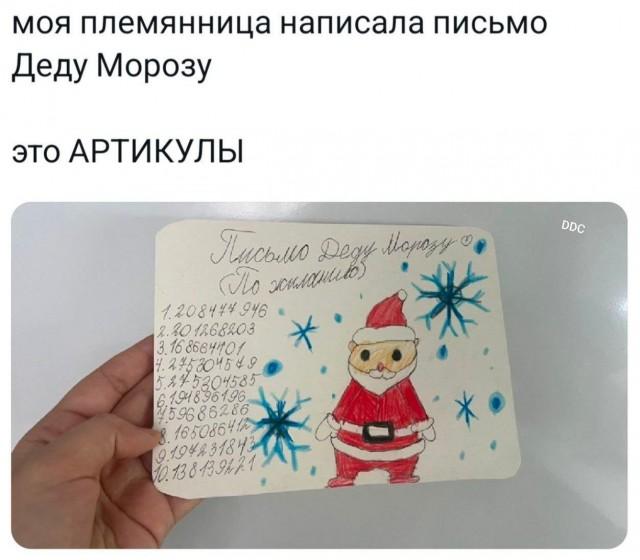 моя племянница написала письмо
Деду Морозу
это АРТИКУЛЫ
DDC
Письмо Деду Морозу
(По желанию)
1.208477946
2.201268203
3.168684701
4.275304549
5.275304585
6.194896196
7.59686286
8.165085412
9.194231843
10.138139221